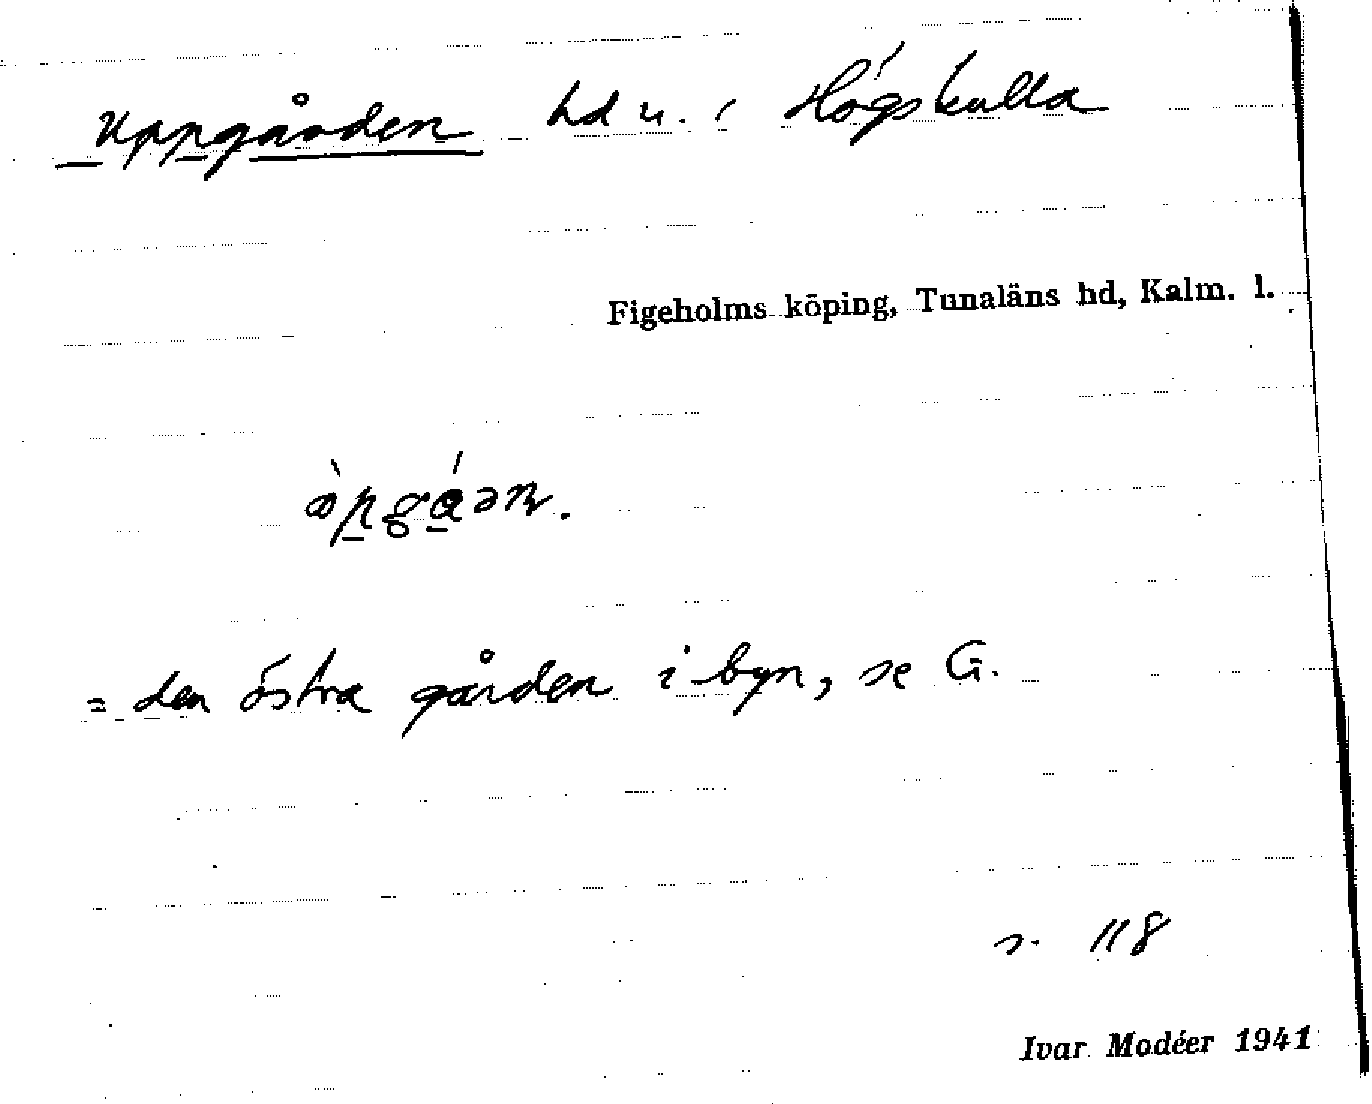 Uppgården hd u. i Högskulla
Figeholms köping, Tunaläns hd, Kalm. l.
= den östra gården i byn, se G.
s. 118
Ivar Modéer 1941